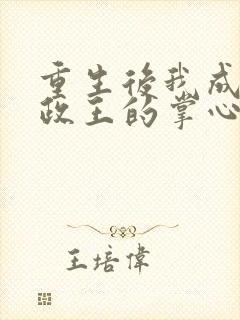 重生後我成
政王的掌心
王培偉